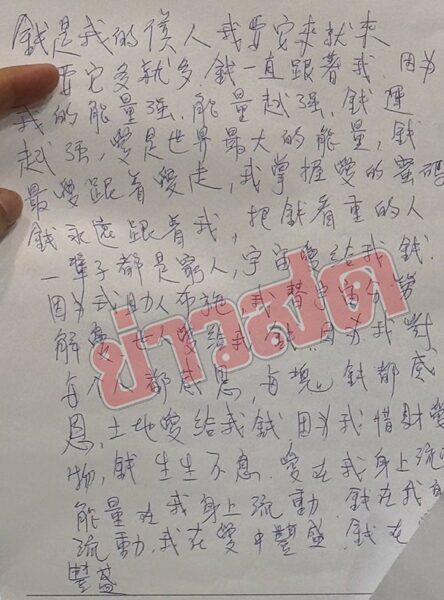 錢是我的僕人我要它來就來
要它多就多,錢一直跟着我,因为
我的能量强,能量越强,錢運
越强,愛是世界最大的能量,錢
最愛跟着愛走,我掌握愛的密碼
錢永遠跟着我,把錢看重的人
一輩子都是窮人,宇宙愛給我錢
因为我助人布施,我替宇宙分勞
解憂,世人愛給我錢,因为我對
每个人都感恩,每塊錢都感
恩,土地愛給我錢因为我惜財愛
物,錢生生不息.愛在我身上流
能量在我身上流動.錢在我身
流動.我在愛中豐盛.錢在
豐盛
ข่าวสด